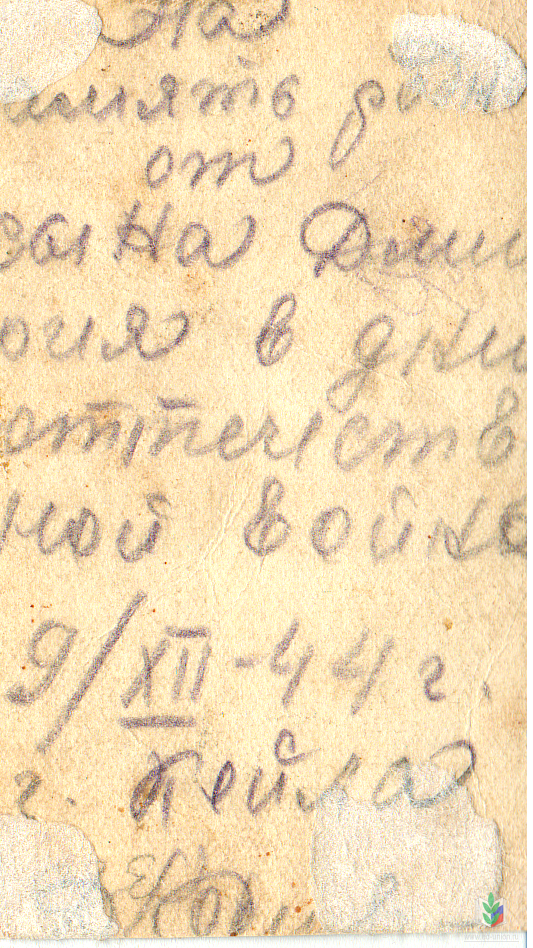 На
память
от
сына Дми
в дни
отечеств
ной войны
9/XII-44 г.
г. Кейла